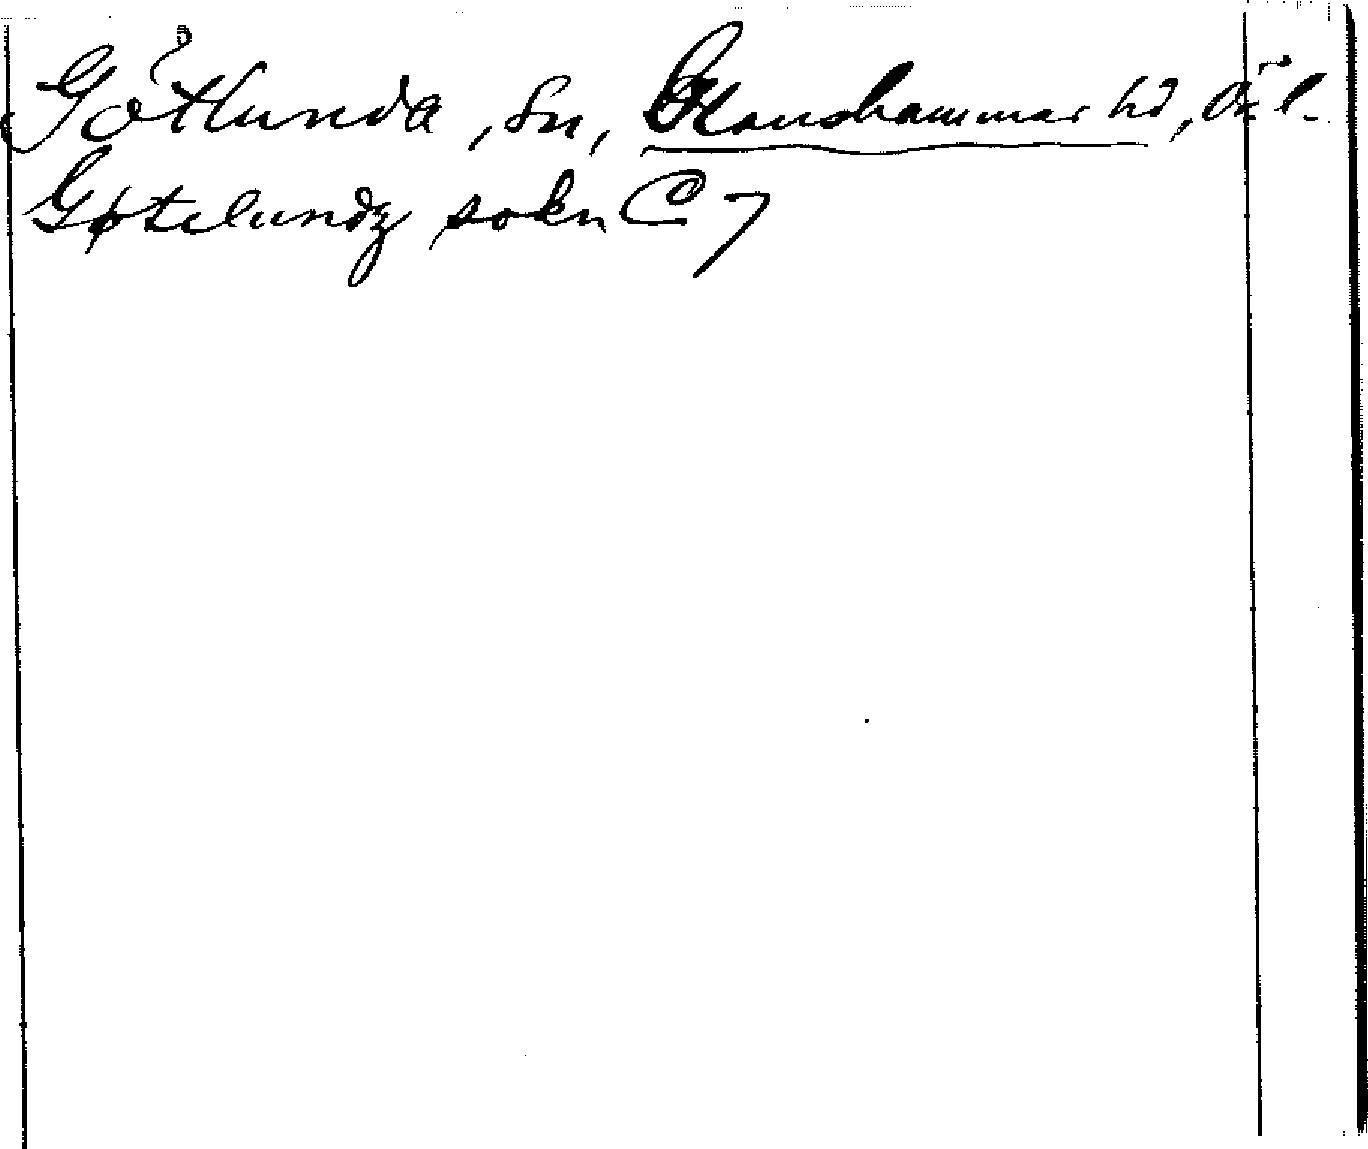 Götlunda, sn, Glanshammar hd, Ör l.
Gøtelundz sokn C 7